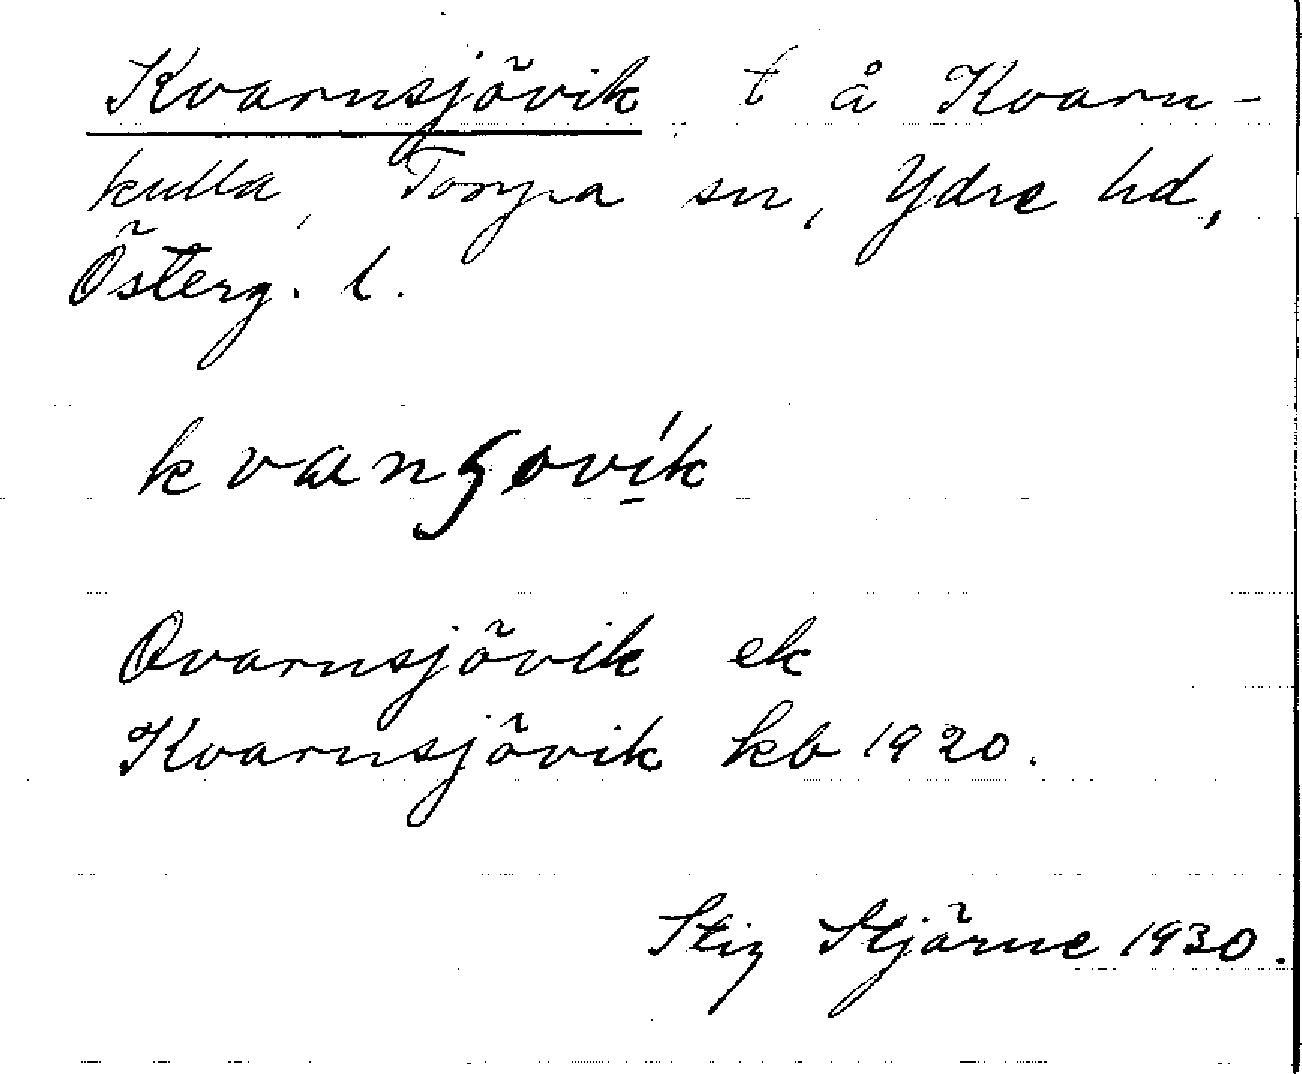 Kvarnsjövik t å Kvarn-
kulla, Torpa sn, Ydre hd,
Österg. l.
kvanʂovík
Qvarnsjövik ek
Kvarnsjövik kb 1920.
Stig Stjärne 1930.